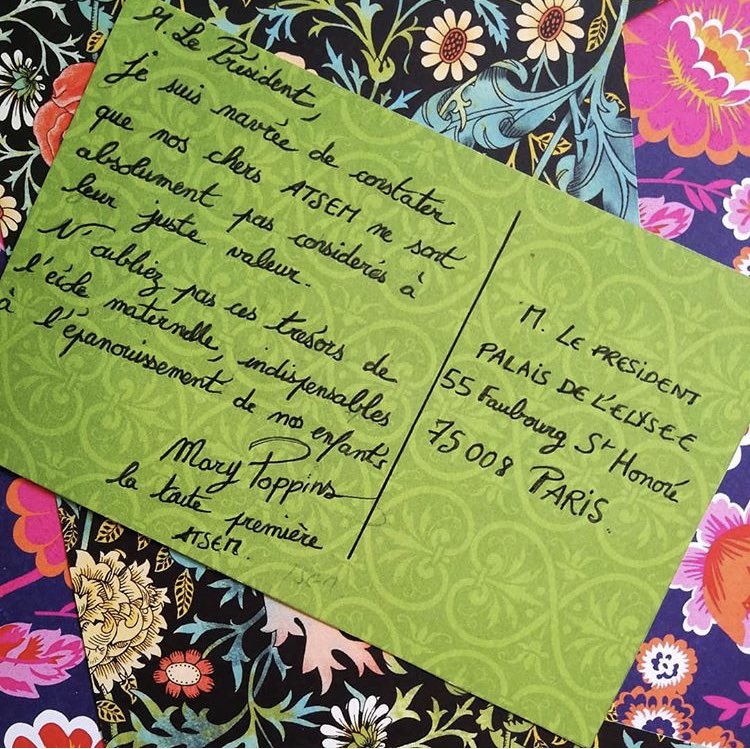 M. Le Président,
je suis navrée de constater
que nos chers ATSEM ne sont
absolument pas considérés à
leur juste valeur.
N'oubliez pas ces trésors de
l'école maternelle, indispensables
à l'épanouissement de nos enfants
Mary Poppins
la toute première
ATSEM.
M. LE PRESIDENT
PALAIS DE L'ELYSEE
55 Faubourg St Honoré
75008 PARIS.